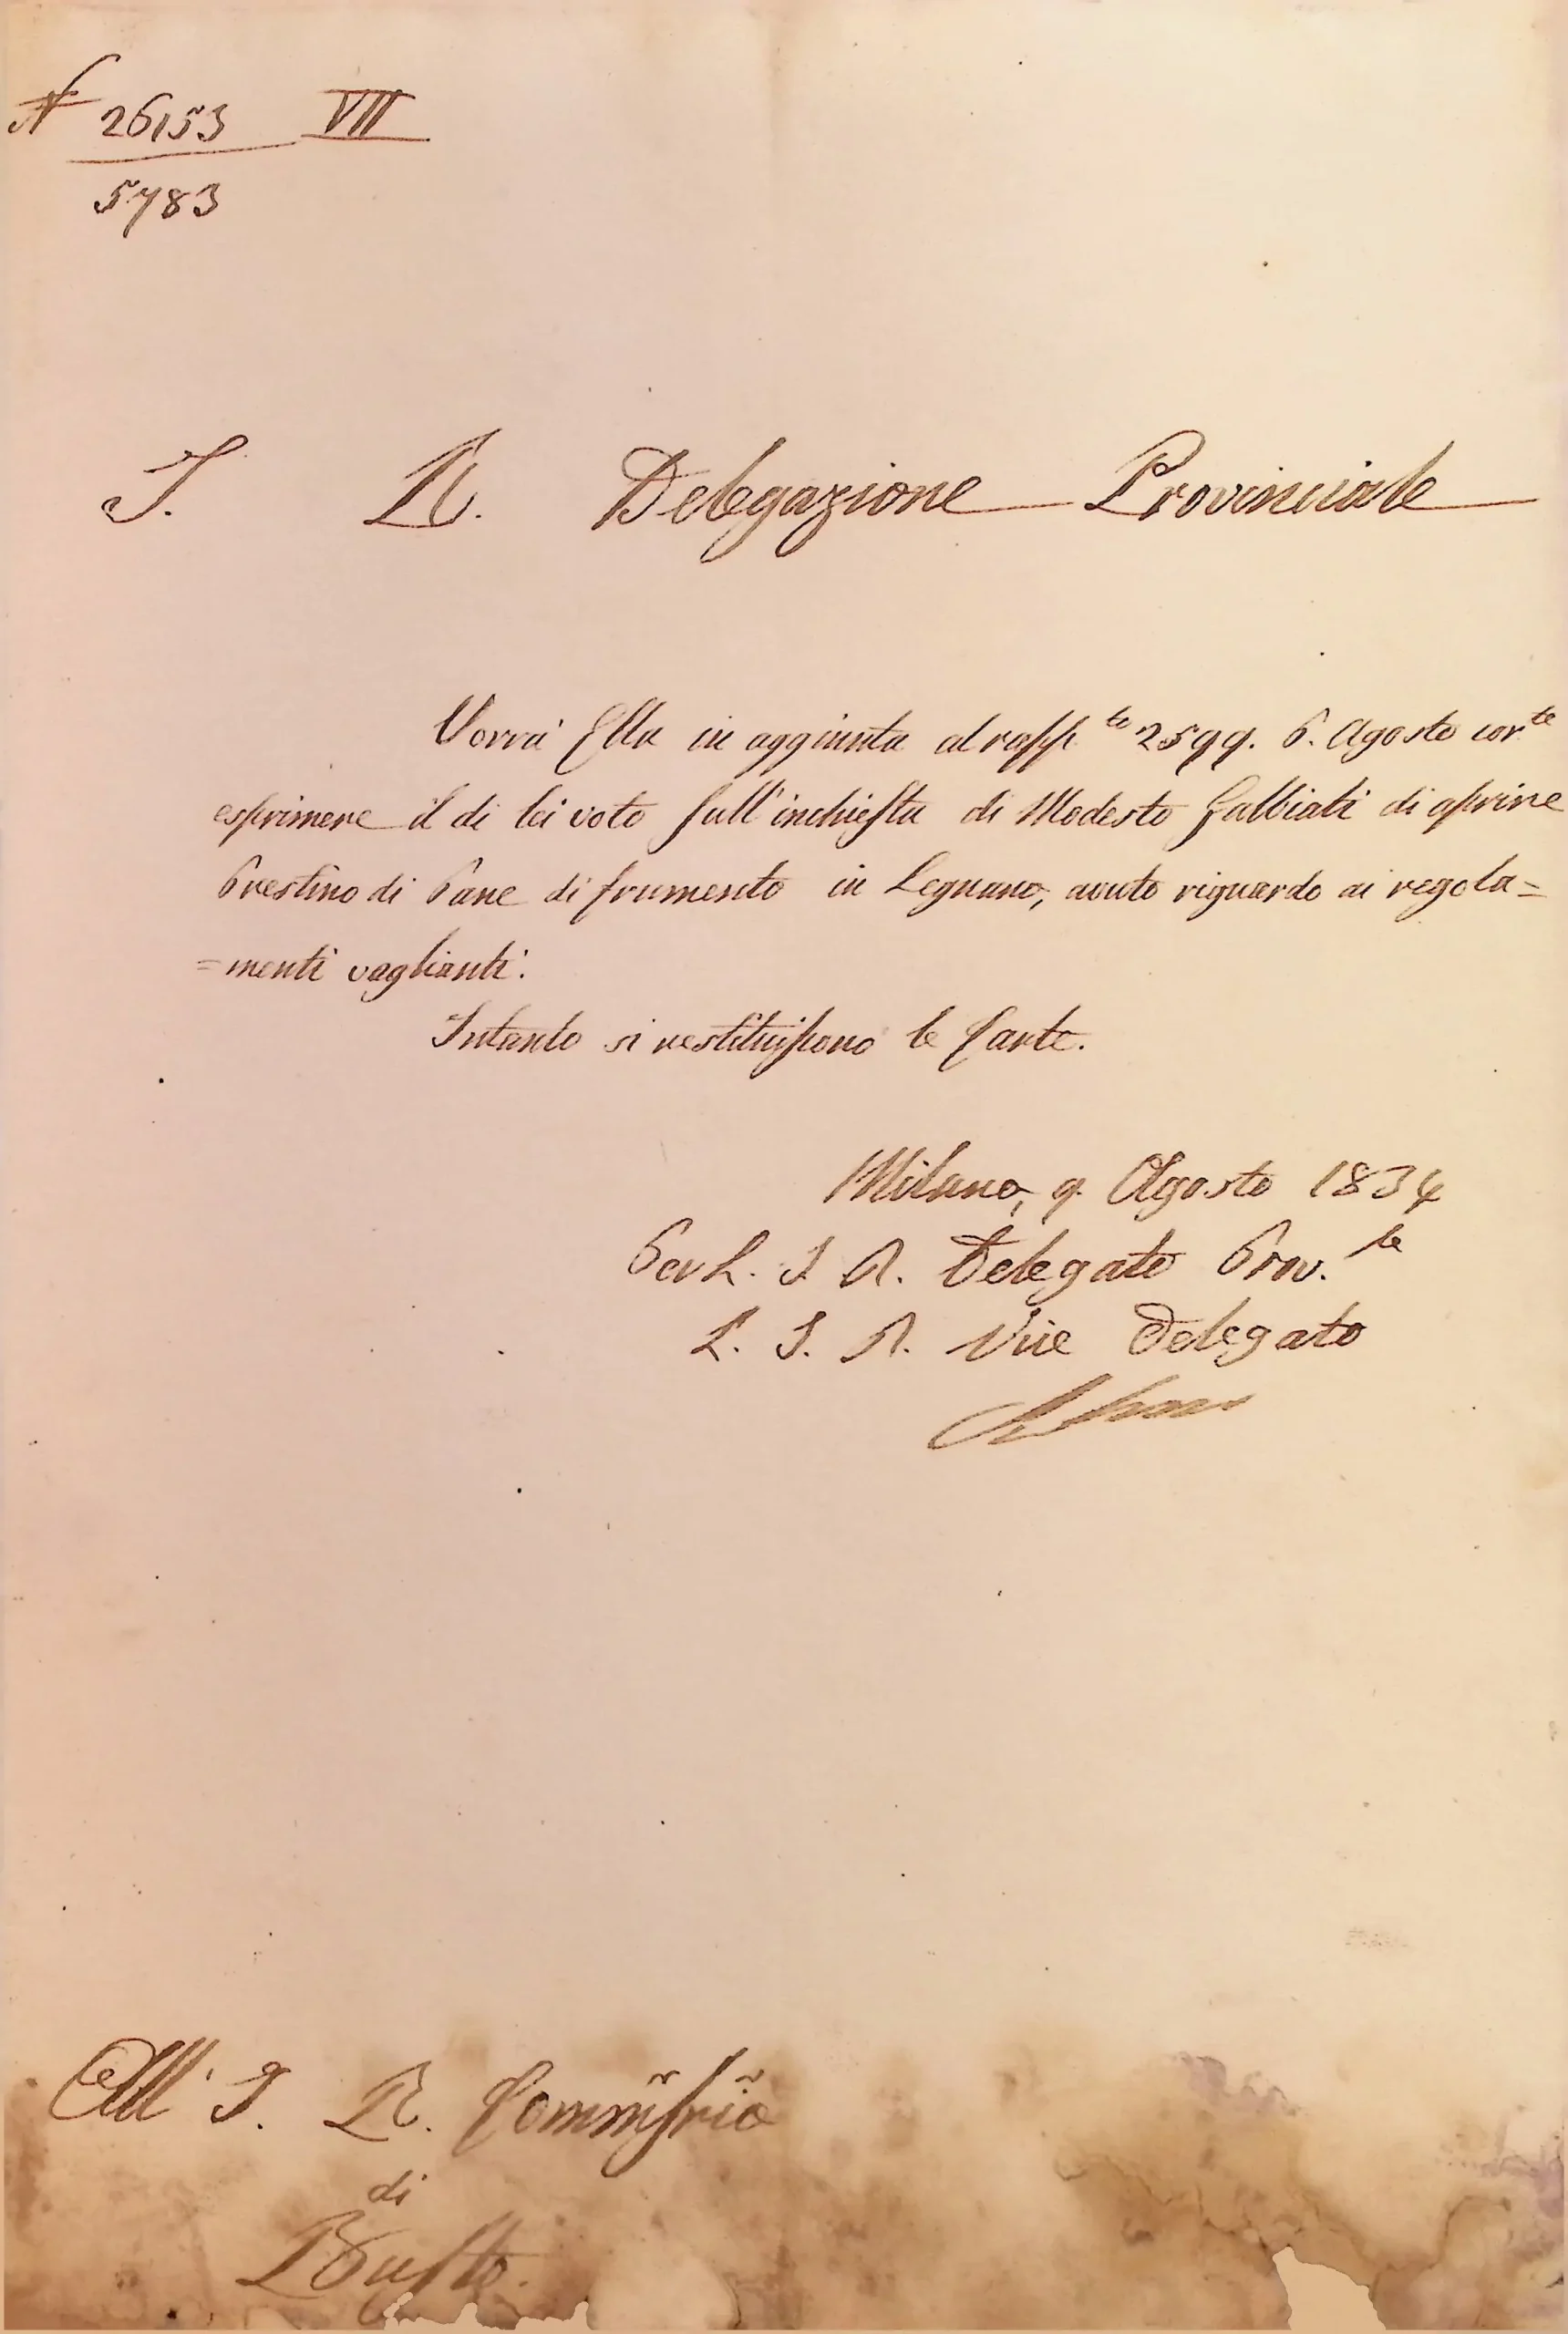 N 26153 VII
5783
I. R. Delegazione Provinciale
Vorrà Ella in aggiunta al rapp.to 2599. 6. Agosto cor.te
esprimere il di lei voto sull'inchiesta di Modesto Galbiati di aprire
Prestino di Pane di frumento in Legnano, avuto riguardo ai regola=
=menti vaglianti.
Intanto si restituiscono le Carte.
Milano, 9. Agosto 1834
Per L. I R. Delegato Prov.le
L. I. R. Vice Delegato
All' I. R. Comm̃issrio
di
Busto.